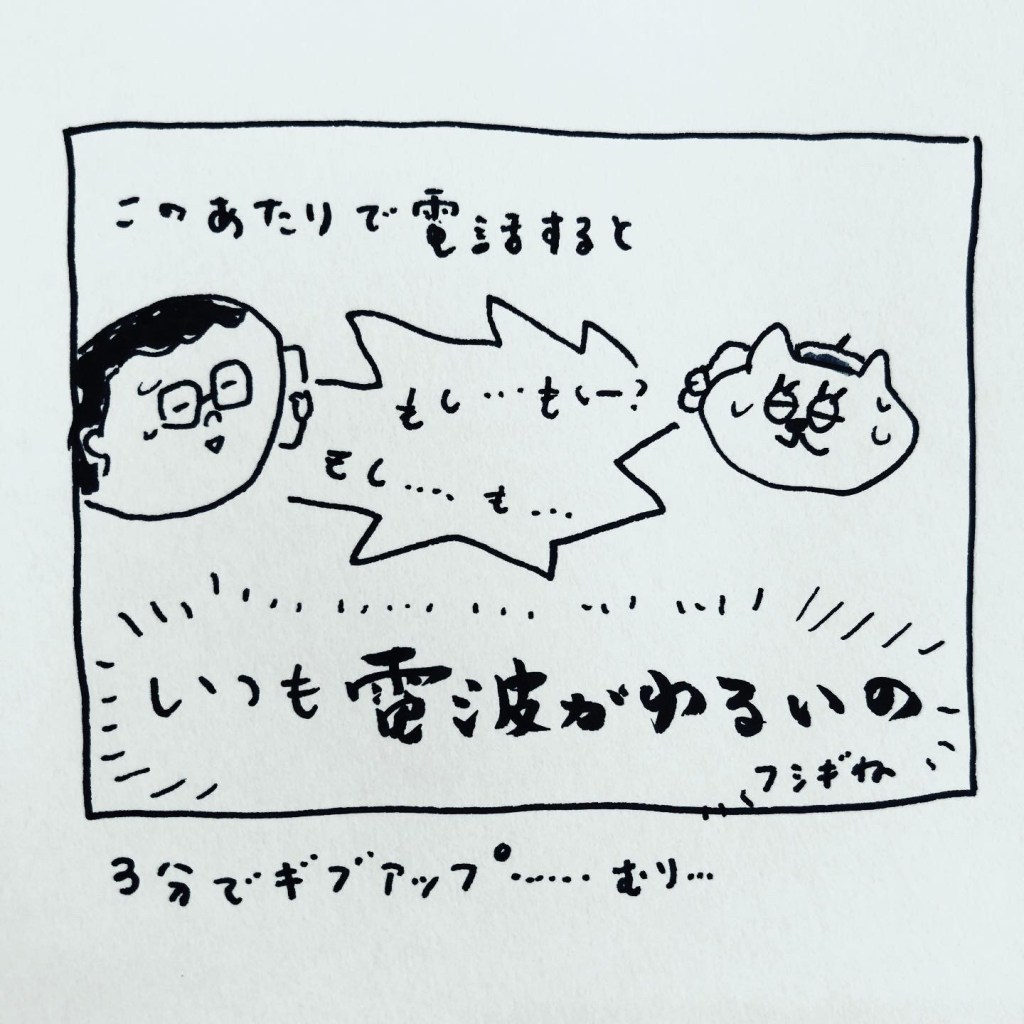 このあたりで電話すると
もし…もしー?
もし…、も…
いつも電波がわるいの
フシギね
3分でギブアップ……むり…